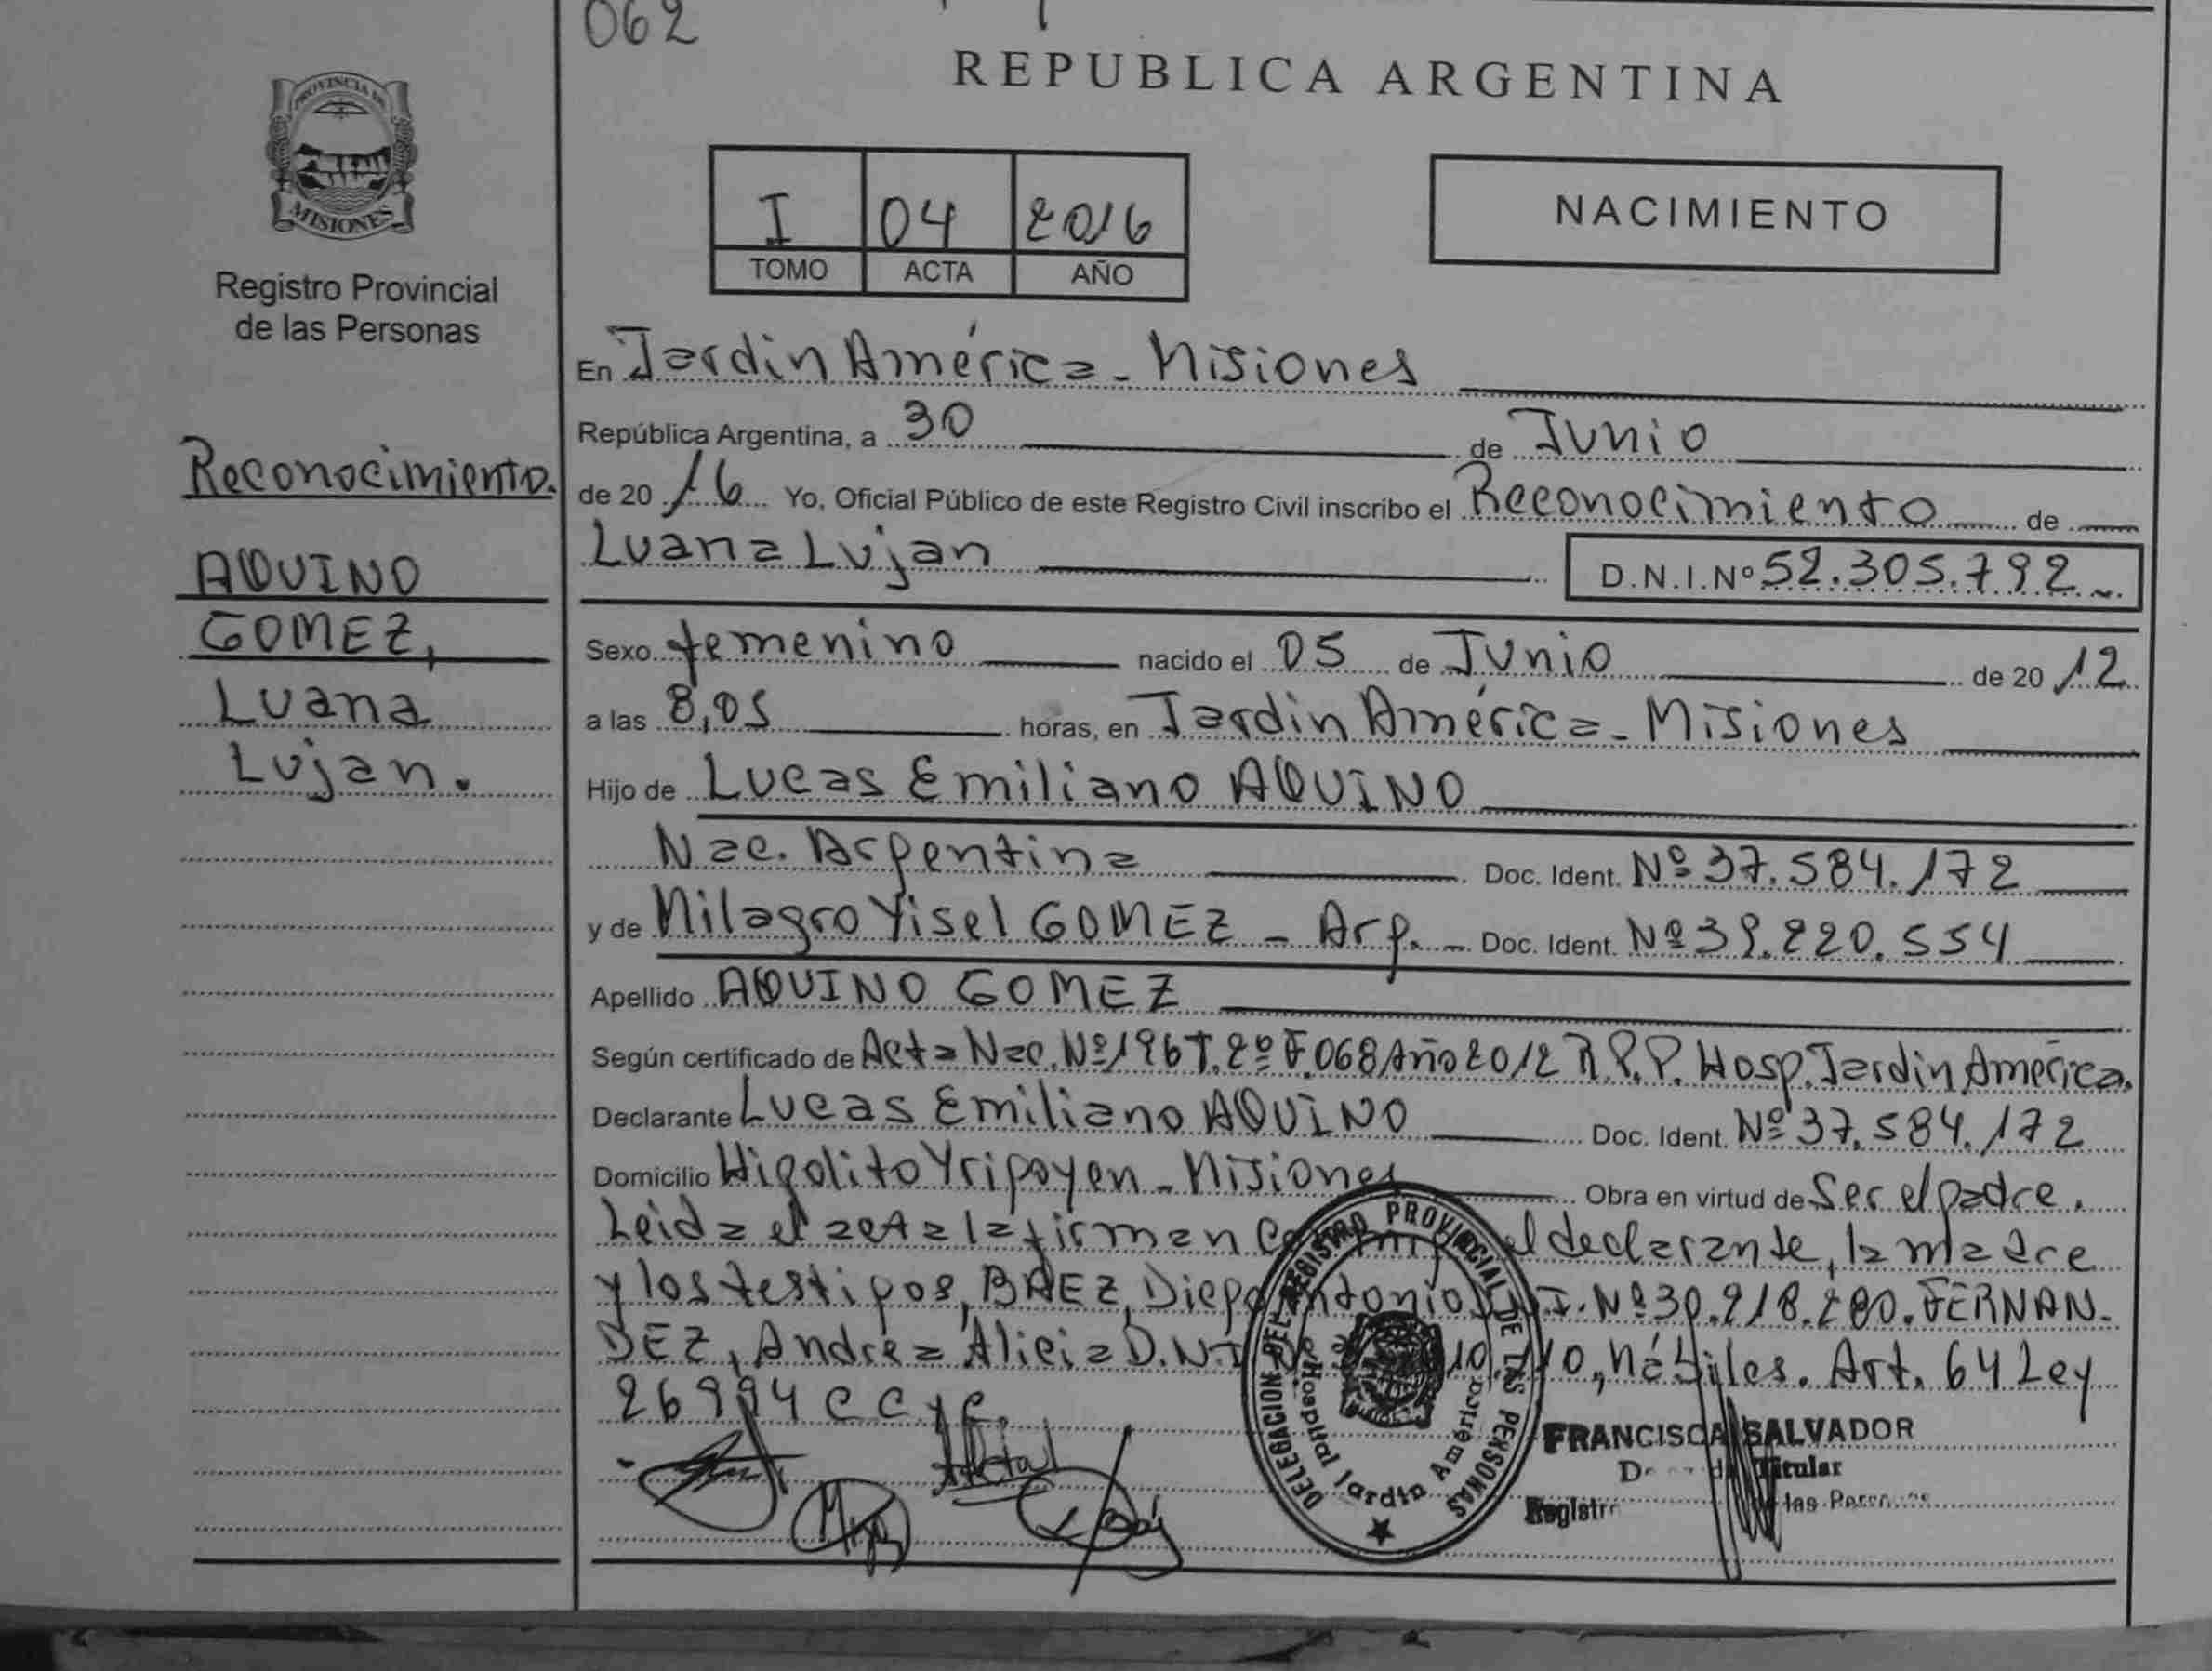 062
REPUBLICA ARGENTINA
PROVINCIA DE
MISIONES
Registro Provincial
de las Personas
I 04 2016
TOMO ACTA AÑO
NACIMIENTO
En Jardin América - Misiones
República Argentina, a 30 de Junio
de 20 16 Yo, Oficial Público de este Registro Civil inscribo el Reconocimiento de
Luana Lujan D.N.I.Nº 52.305.792
Reconocimiento.
AQUINO
GOMEZ,
Luana
Lujan.
Sexo femenino nacido el 05 de Junio de 20 12
a las 8,05 horas, en Jardin América - Misiones
Hijo de Lucas Emiliano AQUINO
Nac. Argentina Doc. Ident. Nº 37.584.172
y de Milagro Yisel GOMEZ - Arg. - Doc. Ident. Nº 39.220.554
Apellido AQUINO GOMEZ
Según certificado de Acta Nac. Nº 196 T. 2º F. 068 Año 2012 R.P.P. Hosp. Jardin América.
Declarante Lucas Emiliano AQUINO Doc. Ident. Nº 37.584.172
Domicilio Hipolito Yrigoyen - Misiones Obra en virtud de Ser el padre.
Leida el acta la firman el declarante, la madre
y los testigos, BAEZ, Diego Antonio D.N.I. Nº 30.918.280. FERNAN-
DEZ, Andrea Alicia D.N.I. hábiles. Art. 64 Ley
26994 CCyC.
DELEGACION DEL REGISTRO PROVINCIAL DE LAS PERSONAS
Hospital Jardín América
FRANCISCA SALVADOR
Titular
las